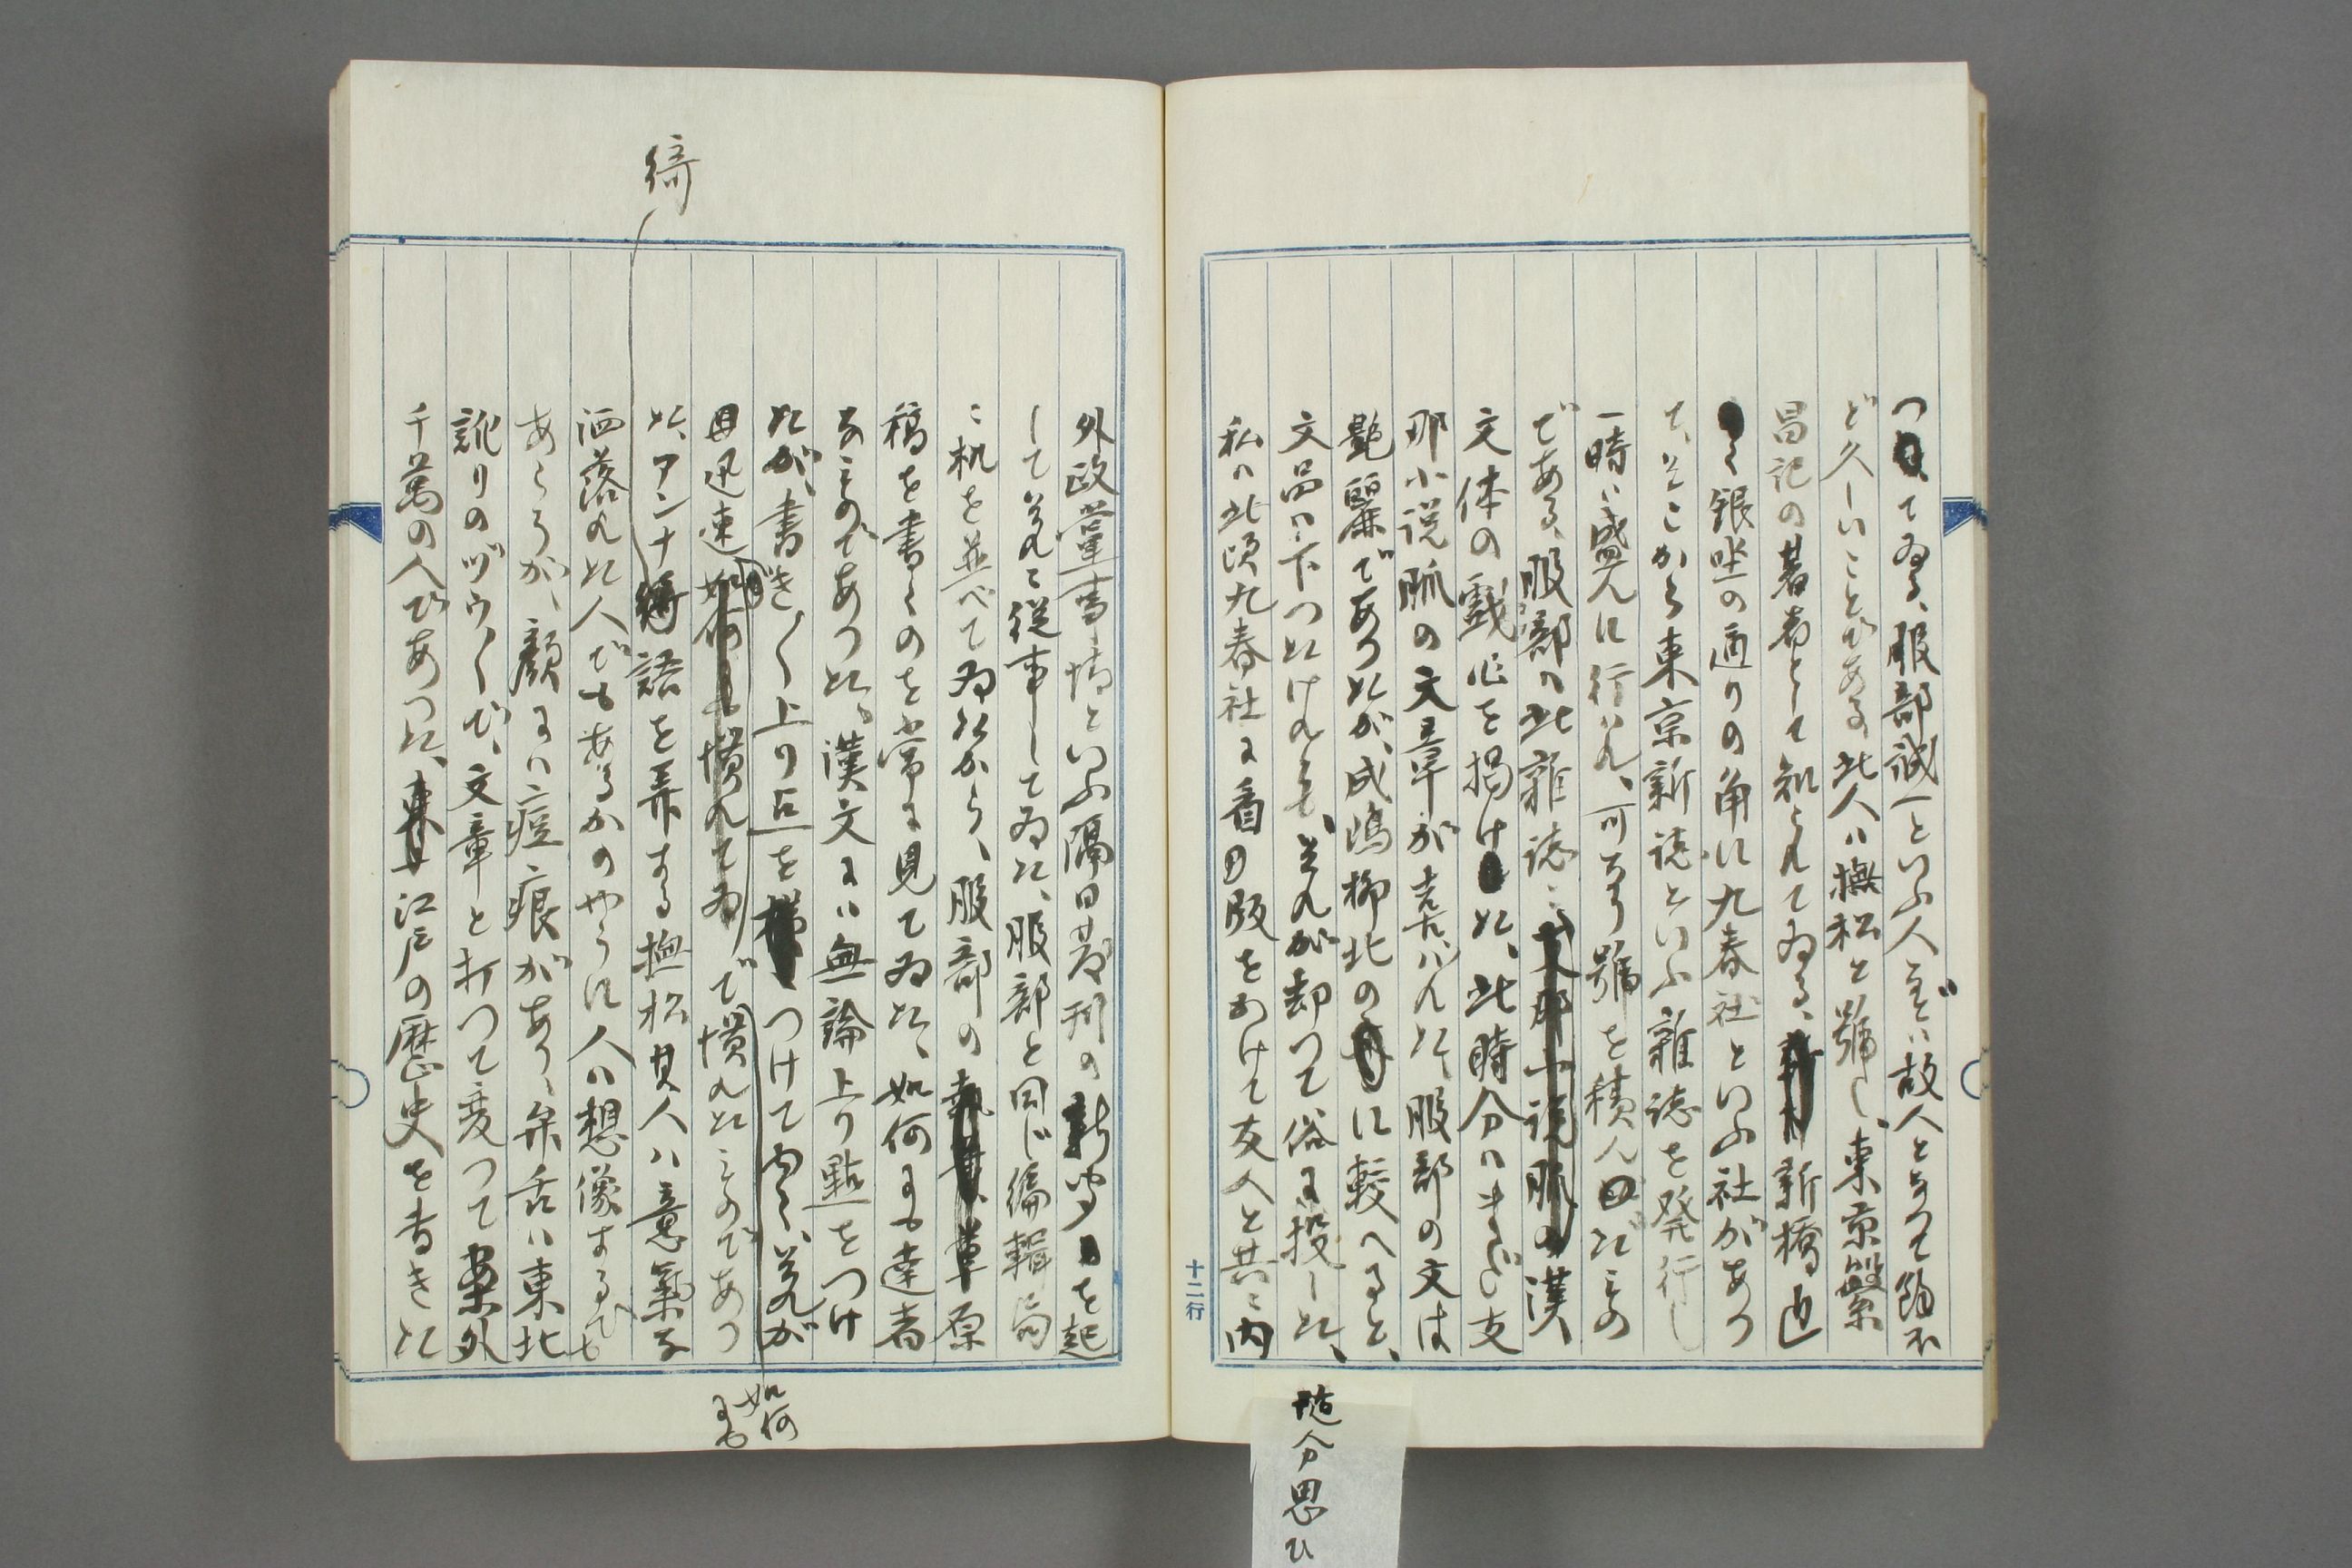 つてゐる、服部誠一といふ人などハ故人となつて餘ほ
ど久しいことである、此人ハ撫松と號し、東京繁
昌記の著者として知られてゐる、新橋近
く銀座の通りの角に九春社といふ社があつ
て、そこから東京新誌といふ雑誌を発行し
一時ハ盛んに行はれ、可なり號を積んだもの
である、服部ハ此雑誌ニ漢
文体の戯作を掲けた、此時分ハまだ支
那小説脈の文章が喜バれた、服部の文は
艶麗であつたが、成嶋柳北のに較へると、
文品ハ下つたけれども、それが却つて俗に投した、
私ハ此頃九春社に看板をかけて友人と共ニ内
十二行
随分思ひ
外政黨事情といふ隔日発刊の新聞を起
して其れに従事してゐた、服部と同じ編輯局
ニ机を並べてゐたから、服部の草原
稿を書くのを常に見てゐた、如何にも達者
なものであつた、漢文にハ無論上り點をつけ
たが、書き〱上り点をつけて内く、其れが
迅速で如何にも慣れたものであつ
た、アンナ綺語を弄する撫松其人ハ意氣な
洒落れた人でもあるかのやうに人ハ想像するでも
あらうが、顔にハ痘痕があり、弁舌ハ東北
訛りのヅウ〱で、文章と打つて変つて案外
千萬の人であつた、江戸の歴史を書きた
綺
如何
にも